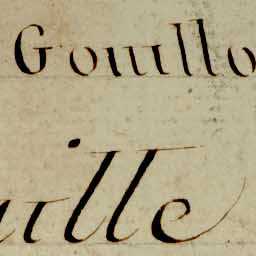 Gouillo
uille